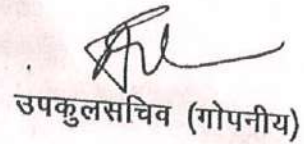 उपकुलसचिव (गोपनीय)